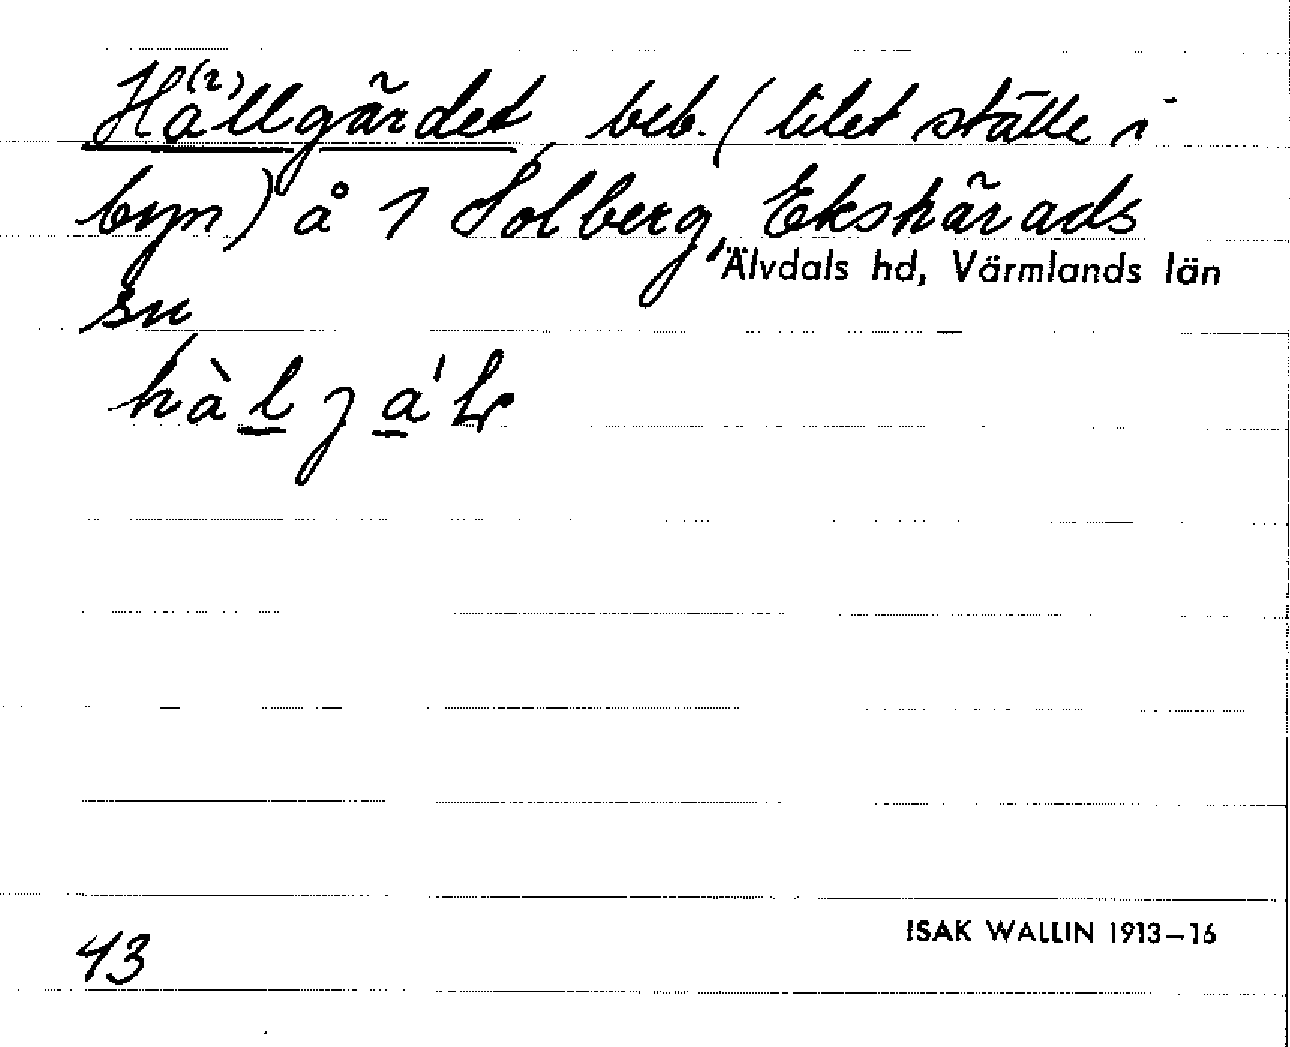 Hä(?)llgärdet, beb. (litet ställe i
byn) å 1 Solberg, Ekshärads
Älvdals hd, Värmlands län
sn
hàlgáɫ
43
ISAK WALLIN 1913–16